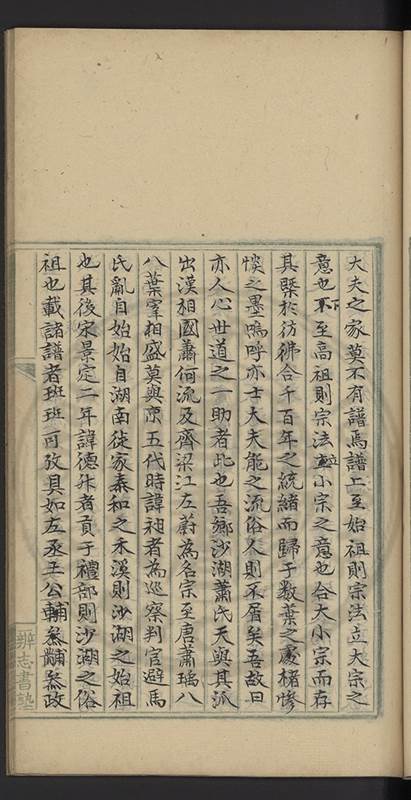 大夫之家莫不有譜焉譜上至始祖則宗法立大宗之
意也下不至高祖則宗法立小宗之意也合大小宗而存
其槩於彷彿合千百年之統緒而歸于數葉之慶楮慘
惔之墨嗚呼亦士大夫能之流俗人則不屑矣吾故曰
亦人心世道之一助者此也吾鄉沙湖蕭氏天與其派
出漢相國蕭何流及齊梁江左蔚為名宗至唐蕭瑀八
八葉宰相盛莫與京五代時諱祖者為巡察判官避馬
氏亂自始始自湖南徒家泰和之禾溪則沙湖之始祖
也其後宋景定二年諱德祥者貢于禮部則沙湖之俗
祖也載諸譜者班班可攷具如左丞王公輔叅黼叅政
辨志書塾